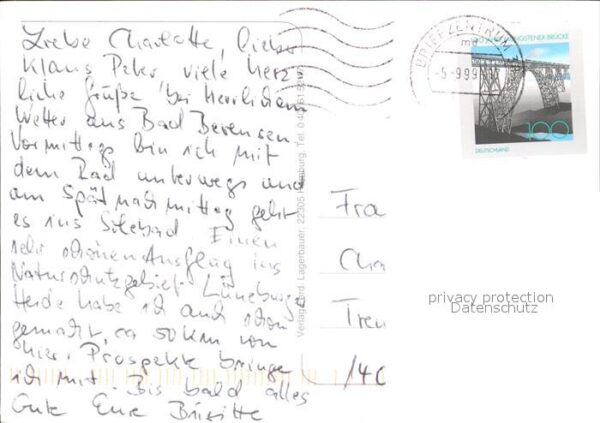 Liebe Charlotte, lieber
Klaus Peter viele herz
liche Grüße bei herrlichem
Wetter aus Bad Bevensen.
Vormittags bin ich mit
dem Rad unterwegs und
am Spätnachmittag geht
es ins Solebad Einen
sehr schönen Ausflug ins
Naturschutzgebiet Lüneburger
Heide habe ich auch schon
gemacht, ca 50 km von
hier. Prospekte bringe
ich mit Bis bald alles
Gute Eure Brigitte
Verlag Gerd. Lagerbauer, 22305 Hamburg, Tel.
BRIEFZENTRUM
-5-999
MÜNGSTENER BRÜCKE
100
DEUTSCHLAND
Fra
Cha
Treu
privacy protection
Datenschutz